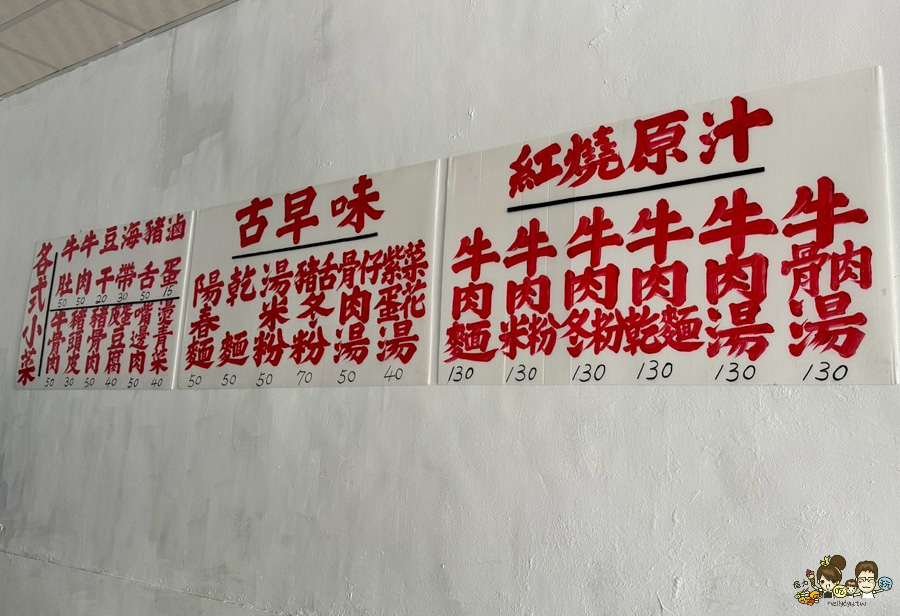 紅燒原汁
牛肉麵 130
牛肉米粉 130
牛肉冬粉 130
牛肉乾麵 130
牛肉湯 130
牛骨肉湯 130
古早味
陽春麵 50
乾麵 50
湯米粉 50
豬舌冬粉 70
骨仔肉湯 50
紫菜蛋花湯 40
各式小菜
牛肚 50
牛肉 50
豆干 20
海帶 30
豬舌 50
滷蛋 15
牛骨肉 50
豬頭皮 30
豬骨肉 50
皮蛋豆腐 40
嘴邊肉 50
燙青菜 40
nellydyu.tw